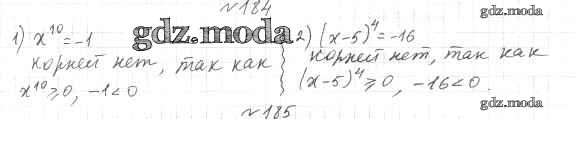 №184
gdz.moda
1) x¹⁰=-1
корней нет, так как
x¹⁰⩾0, -1<0
gdz.moda
2) (x-5)⁴=-16
корней нет, так как
(x-5)⁴⩾0, -16<0.
gdz.moda
№185